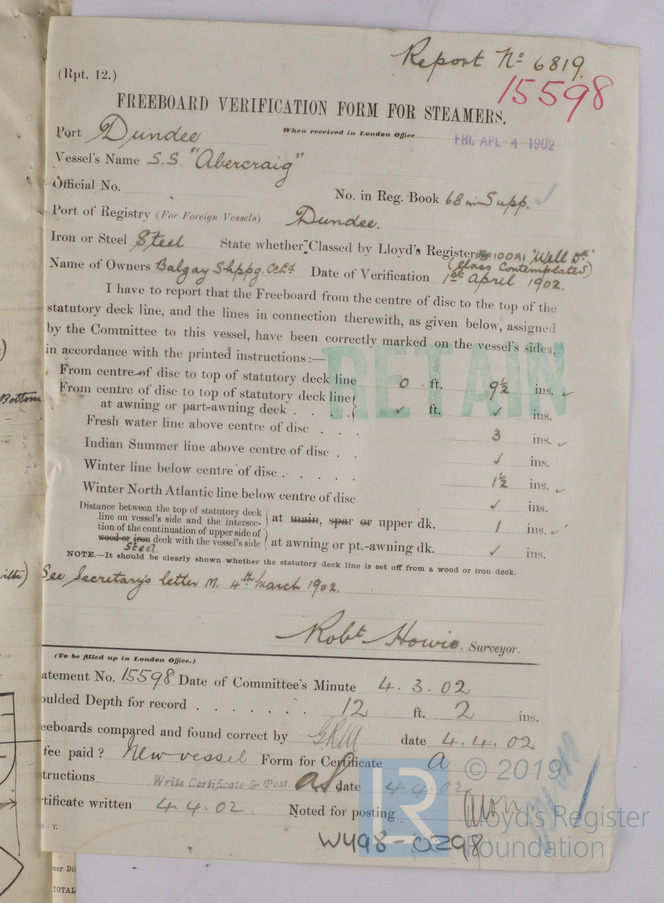 Report No 6819.
(Rpt. 12.)
15598
FREEBOARD VERIFICATION FORM FOR STEAMERS.
Port Dundee When received in London Office FRI. APL 4 1902
Vessel's Name S.S "Abercraig"
Official No. No. in Reg. Book 68 in Supp.
Port of Registry (For Foreign Vessels) Dundee.
Iron or Steel Steel State whether Classed by Lloyd's Register 100A1 "Well Dk"
(Class Contemplated)
Name of Owners Balgay Shppg. Co Ld Date of Verification 1st April 1902.
I have to report that the Freeboard from the centre of disc to the top of the
statutory deck line, and the lines in connection therewith, as given below, assigned
by the Committee to this vessel, have been correctly marked on the vessel's sides,
in accordance with the printed instructions:—
RETAIN
From centre of disc to top of statutory deck line 0 ft. 9½ ins. ✓
From centre of disc to top of statutory deck line
at awning or part-awning deck . . ✓ ft. ✓ ins.
Fresh water line above centre of disc . . . 3 ins. ✓
Indian Summer line above centre of disc . . ✓ ins.
Winter line below centre of disc . . . . . 1½ ins. ✓
Winter North Atlantic line below centre of disc ✓ ins.
Distance between the top of statutory deck
line on vessel's side and the intersec-
tion of the continuation of upper side of
wood or iron deck with the vessel's side
Steel
at main, spar or upper dk. 1 ins. ✓
at awning or pt.-awning dk. ✓ ins.
NOTE.—It should be clearly shown whether the statutory deck line is set off from a wood or iron deck.
See Secretary's letter M. 4th March 1902.
Robt Howie. Surveyor.
(To be filled up in London Office.)
atement No. 15598 Date of Committee's Minute 4.3.02
oulded Depth for record . . . . . . . 12 ft. 2 ins.
eeboards compared and found correct by GRM date 4.4.02
fee paid? New vessel Form for Certificate A
tructions Write Certificate & Post. date 4.4.02
rtificate written 4.4.02 Noted for posting
LR
© 2019
Lloyd's Register
Foundation
W498-0298
Bottom
TOTAL